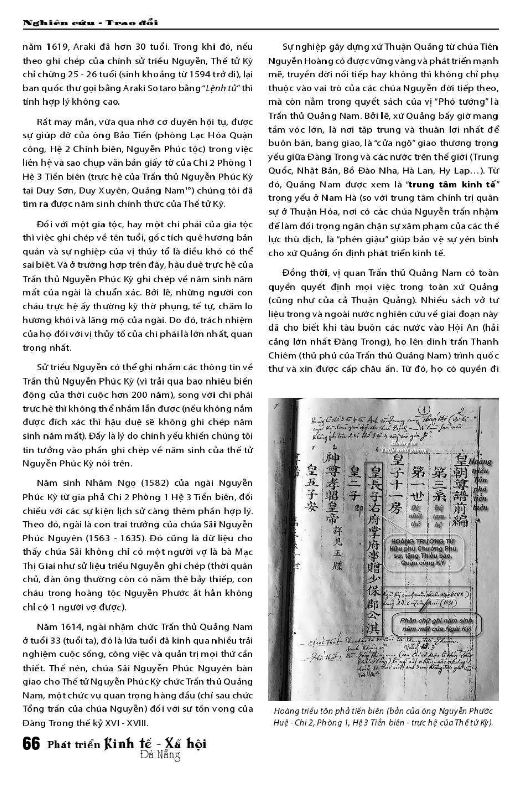 Nghiên cứu - Trao đổi
năm 1619, Araki đã hơn 30 tuổi. Trong khi đó, nếu
theo ghi chép của chính sử triều Nguyễn, Thế tử Kỳ
chỉ chừng 25 - 26 tuổi (sinh khoảng từ 1594 trở đi), lại
ban quốc thư gọi bằng Araki Sotaro bằng “Lệnh tử” thì
tính hợp lý không cao.
Rất may mắn, vừa qua nhờ cơ duyên hội tụ, được
sự giúp đỡ của ông Bảo Tiến (phòng Lạc Hóa Quận
công, Hệ 2 Chính biên, Nguyễn Phúc tộc) trong việc
liên hệ và sao chụp văn bản giấy tờ của Chi 2 Phòng 1
Hệ 3 Tiền biên (trực hệ của Trấn thủ Nguyễn Phúc Kỳ
tại Duy Sơn, Duy Xuyên, Quảng Nam¹⁰) chúng tôi đã
tìm ra được năm sinh chính thức của Thế tử Kỳ.
Đối với một gia tộc, hay một chi phái của gia tộc
thì việc ghi chép về tên tuổi, gốc tích quê hương bản
quán và sự nghiệp của vị thủy tổ là điều khó có thể
sai biệt. Và ở trường hợp trên đây, hậu duệ trực hệ của
Trấn thủ Nguyễn Phúc Kỳ ghi chép về năm sinh năm
mất của ngài là chuẩn xác. Bởi lẽ, những người con
cháu trực hệ ấy thường kỳ thờ phụng, tế tự, chăm lo
hương khói và lăng mộ của ngài. Do đó, trách nhiệm
của họ đối với vị thủy tổ của chi phái là lớn nhất, quan
trọng nhất.
Sử triều Nguyễn có thể ghi nhầm các thông tin về
Trấn thủ Nguyễn Phúc Kỳ (vì trải qua bao nhiêu biến
động của thời cuộc hơn 200 năm), song với chi phái
trực hệ thì không thể nhầm lẫn được (nếu không nắm
được đích xác thì hậu duệ sẽ không ghi chép năm
sinh năm mất). Đấy là lý do chính yếu khiến chúng tôi
tin tưởng vào phần ghi chép về năm sinh của thế tử
Nguyễn Phúc Kỳ nói trên.
Năm sinh Nhâm Ngọ (1582) của ngài Nguyễn
Phúc Kỳ từ gia phả Chi 2 Phòng 1 Hệ 3 Tiền biên, đối
chiếu với các sự kiện lịch sử càng thêm phần hợp lý.
Theo đó, ngài là con trai trưởng của chúa Sãi Nguyễn
Phúc Nguyên (1563 - 1635). Đó cũng là dữ liệu cho
thấy chúa Sãi không chỉ có một người vợ là bà Mạc
Thị Giai như sử liệu triều Nguyễn ghi chép (thời quân
chủ, đàn ông thường còn có năm thê bảy thiếp, con
cháu trong hoàng tộc Nguyễn Phước ắt hẳn không
chỉ có 1 người vợ được).
Năm 1614, ngài nhậm chức Trấn thủ Quảng Nam
ở tuổi 33 (tuổi ta), đó là lứa tuổi đã kinh qua nhiều trải
nghiệm cuộc sống, công việc và quản trị mọi thứ cần
thiết. Thế nên, chúa Sãi Nguyễn Phúc Nguyên bàn
giao cho Thế tử Nguyễn Phúc Kỳ chức Trấn thủ Quảng
Nam, một chức vụ quan trọng hàng đầu (chỉ sau chức
Tổng trấn của chúa Nguyễn) đối với sự tồn vong của
Đàng Trong thế kỷ XVI - XVIII.
Sự nghiệp gây dựng xứ Thuận Quảng từ chúa Tiên
Nguyễn Hoàng có được vững vàng và phát triển mạnh
mẽ, truyền đời nối tiếp hay không thì không chỉ phụ
thuộc vào vai trò của các chúa Nguyễn đời tiếp theo,
mà còn nằm trong quyết sách của vị “Phó tướng” là
Trấn thủ Quảng Nam. Bởi lẽ, xứ Quảng bấy giờ mang
tầm vóc lớn, là nơi tập trung và thuận lợi nhất để
buôn bán, bang giao, là “cửa ngõ” giao thương trọng
yếu giữa Đàng Trong và các nước trên thế giới (Trung
Quốc, Nhật Bản, Bồ Đào Nha, Hà Lan, Hy Lạp…). Từ
đó, Quảng Nam được xem là “trung tâm kinh tế”
trong yếu ở Nam Hà (so với trung tâm chính trị quân
sự ở Thuận Hóa, nơi có các chúa Nguyễn trấn nhậm
để làm đối trọng ngăn chặn sự xâm phạm của các thế
lực thù địch, là “phên giậu” giúp bảo vệ sự yên bình
cho xứ Quảng ổn định phát triển kinh tế.
Đồng thời, vị quan Trấn thủ Quảng Nam có toàn
quyền quyết định mọi việc trong toàn xứ Quảng
(cũng như của cả Thuận Quảng). Nhiều sách vở tư
liệu trong và ngoài nước nghiên cứu về giai đoạn này
đã cho biết khi tàu buôn các nước vào Hội An (hải
cảng lớn nhất Đàng Trong), họ lên dinh trấn Thanh
Chiêm (thủ phủ của Trấn thủ Quảng Nam) trình quốc
thư và xin được cấp châu ấn. Từ đó, họ có quyền đi
皇朝尊譜前編
第三系
第一世
皇子十一房
皇長子右府掌府事贈少保郡公淇
皇二子
神尊孝昭皇帝
皇五子安
Hoàng
triều
tôn
phả
tiền
biên
HOÀNG TRƯỞNG TỬ
Hữu phủ Chưởng Phủ
sự, tặng Thiếu bảo,
Quận công KỲ
Phần chữ ghi năm sinh
năm mất của Ngài Kỳ
Hoàng triều tôn phả tiền biên (bản của ông Nguyễn Phước
Huệ - Chi 2, Phòng 1, Hệ 3 Tiền biên - trực hệ của Thế tử Kỳ).
66 Phát triển Kinh tế - Xã hội
Đà Nẵng